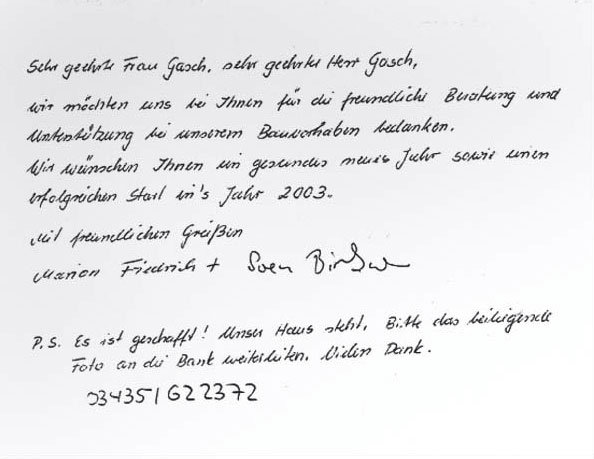 Sehr geehrte Frau Gasch, sehr geehrter Herr Gasch,
wir möchten uns bei Ihnen für die freundliche Beratung und
Unterstützung bei unserem Bauvorhaben bedanken.
Wir wünschen Ihnen ein gesundes neues Jahr sowie einen
erfolgreichen Start in's Jahr 2003.
Mit freundlichen Grüßen
Marion Friedrich + Sven
P.S. Es ist geschafft! Unser Haus steht. Bitte das beiliegende
Foto an die Bank weiterleiten. Vielen Dank.
034351/622372